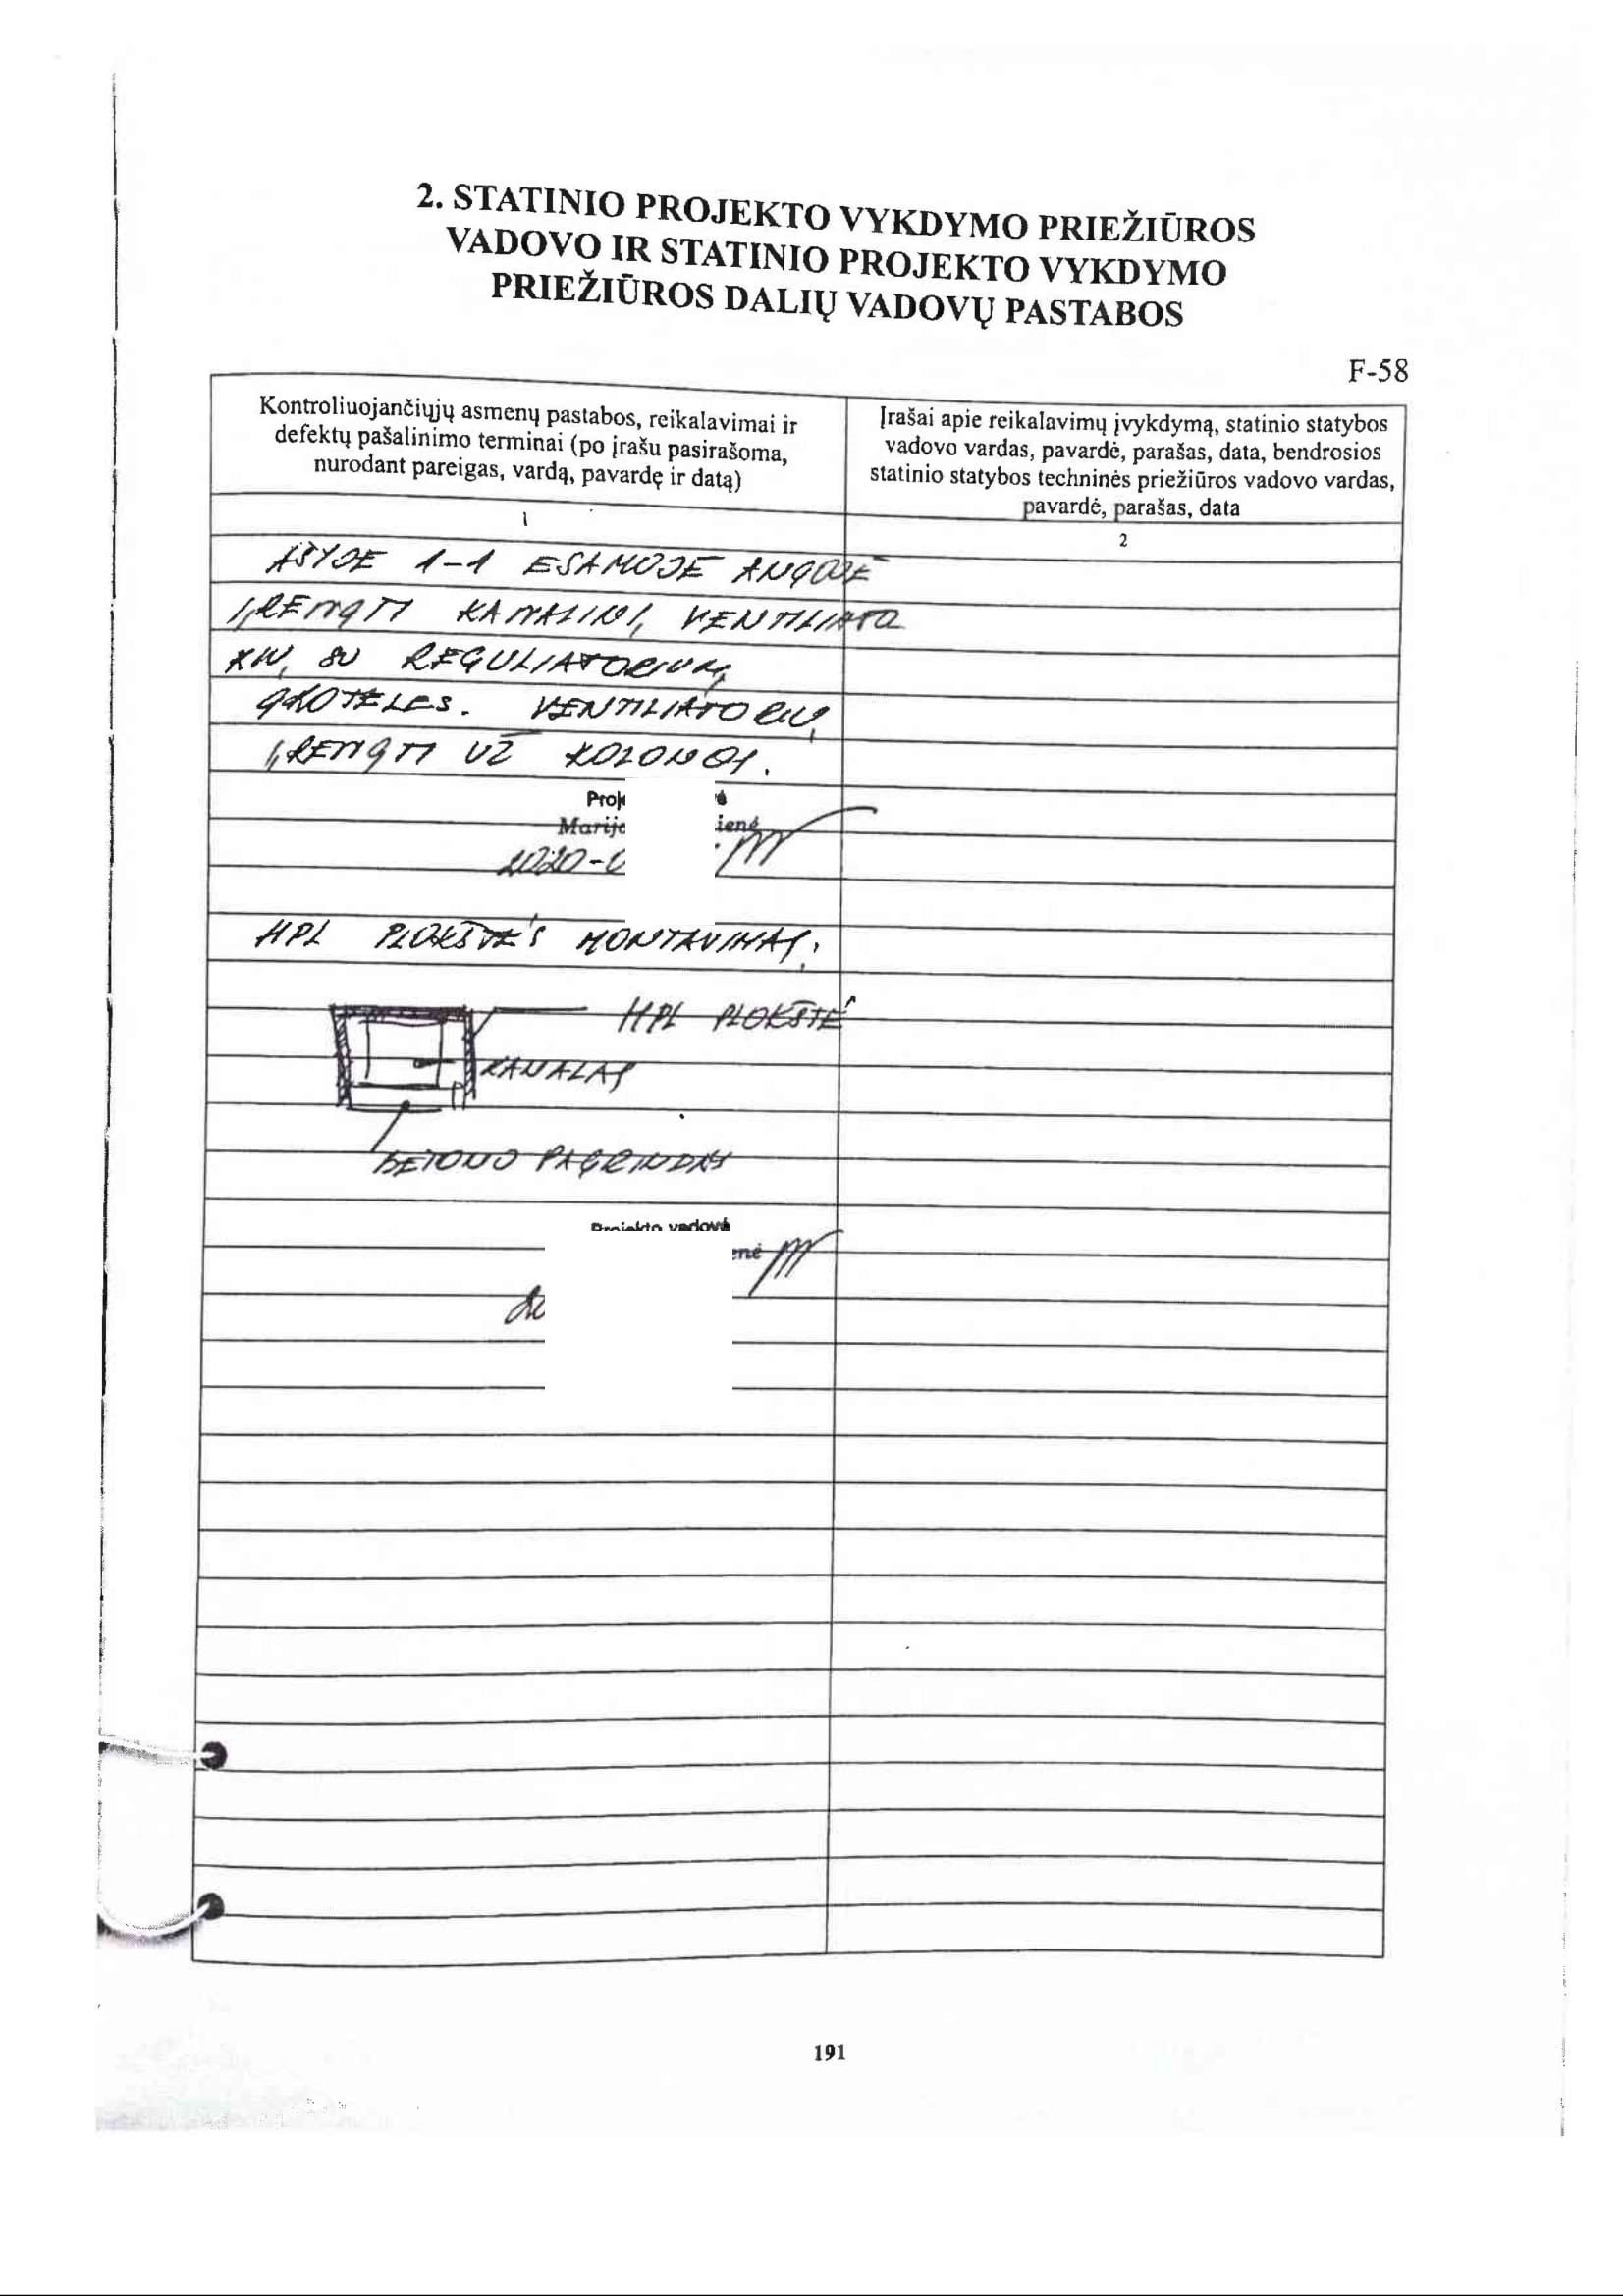 2. STATINIO PROJEKTO VYKDYMO PRIEŽIŪROS
VADOVO IR STATINIO PROJEKTO VYKDYMO
PRIEŽIŪROS DALIŲ VADOVŲ PASTABOS
F-58
Kontroliuojančiųjų asmenų pastabos, reikalavimai ir
defektų pašalinimo terminai (po įrašu pasirašoma,
nurodant pareigas, vardą, pavardę ir datą)
Įrašai apie reikalavimų įvykdymą, statinio statybos
vadovo vardas, pavardė, parašas, data, bendrosios
statinio statybos techninės priežiūros vadovo vardas,
pavardė, parašas, data
1
2
AŠYJE 1-1 ESAMOJE ANGOJE
ĮRENGTI KANALINĮ VENTILIATO
SU REGULIATORIUM,
GROTELES. VENTILIATORIŲ
ĮRENGTI UŽ KOLONOS.
Proj
Marij ienė
2020-0
HPL PLOKŠTĖS MONTAVIMAS.
HPL PLOKŠTĖ
KANALAS
BETONO PAGRINDAS
Projekto vadovė
enė
191